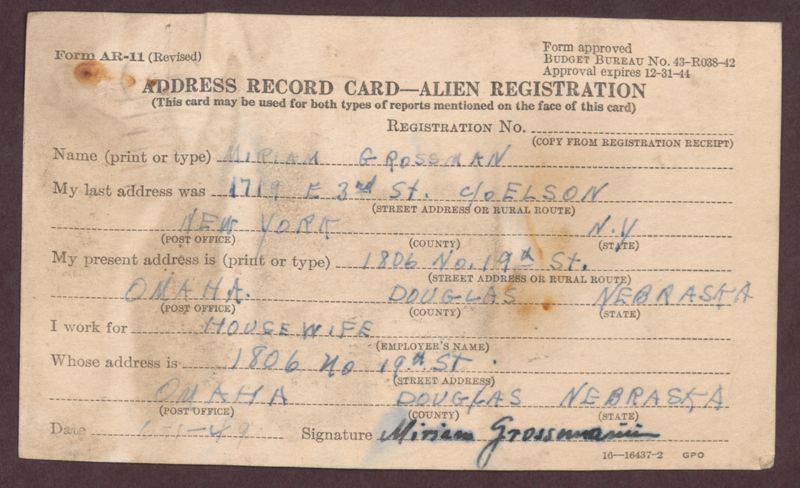 Form AR-11 (Revised)
Form approved
Budget Bureau No. 43-R038-42
Approval expires 12-31-44
ADDRESS RECORD CARD—ALIEN REGISTRATION
(This card may be used for both types of reports mentioned on the face of this card)
Registration No.
(COPY FROM REGISTRATION RECEIPT)
Name (print or type) MIRIAM GROSSMAN
My last address was 1719 E 3rd St. c/o ELSON
(STREET ADDRESS OR RURAL ROUTE)
NEW YORK N.Y
(POST OFFICE) (COUNTY) (STATE)
My present address is (print or type) 1806 No. 19th St.
(STREET ADDRESS OR RURAL ROUTE)
OMAHA. DOUGLAS NEBRASKA
(POST OFFICE) (COUNTY) (STATE)
I work for HOUSEWIFE
(EMPLOYER'S NAME)
Whose address is 1806 No 19th ST.
(STREET ADDRESS)
OMAHA DOUGLAS NEBRASKA
(POST OFFICE) (COUNTY) (STATE)
Date Signature Miriam Grossmann
16—16437-2 GPO